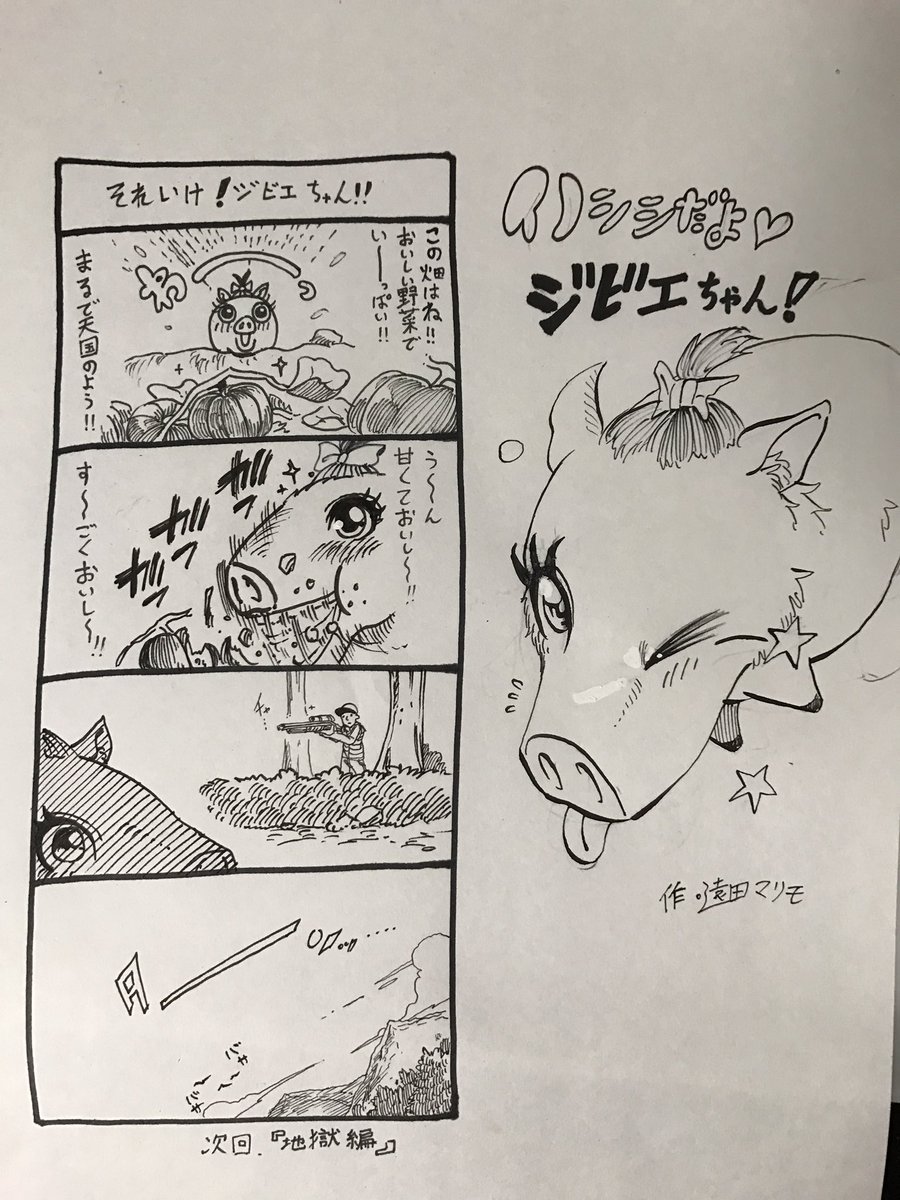 それいけ!ジビエちゃん!!
この畑はね!!
おいしい野菜で
い〜〜っぱい!!
わーっ
まるで天国のよう!!
う〜〜ん
甘くておいし〜〜!!
ガッ
ガッ
ガッ
す〜〜ごくおいし〜〜!!
チャ
次回.『地獄編』
イノシシだよ♡
ジビエちゃん!
作・遠田マリモ